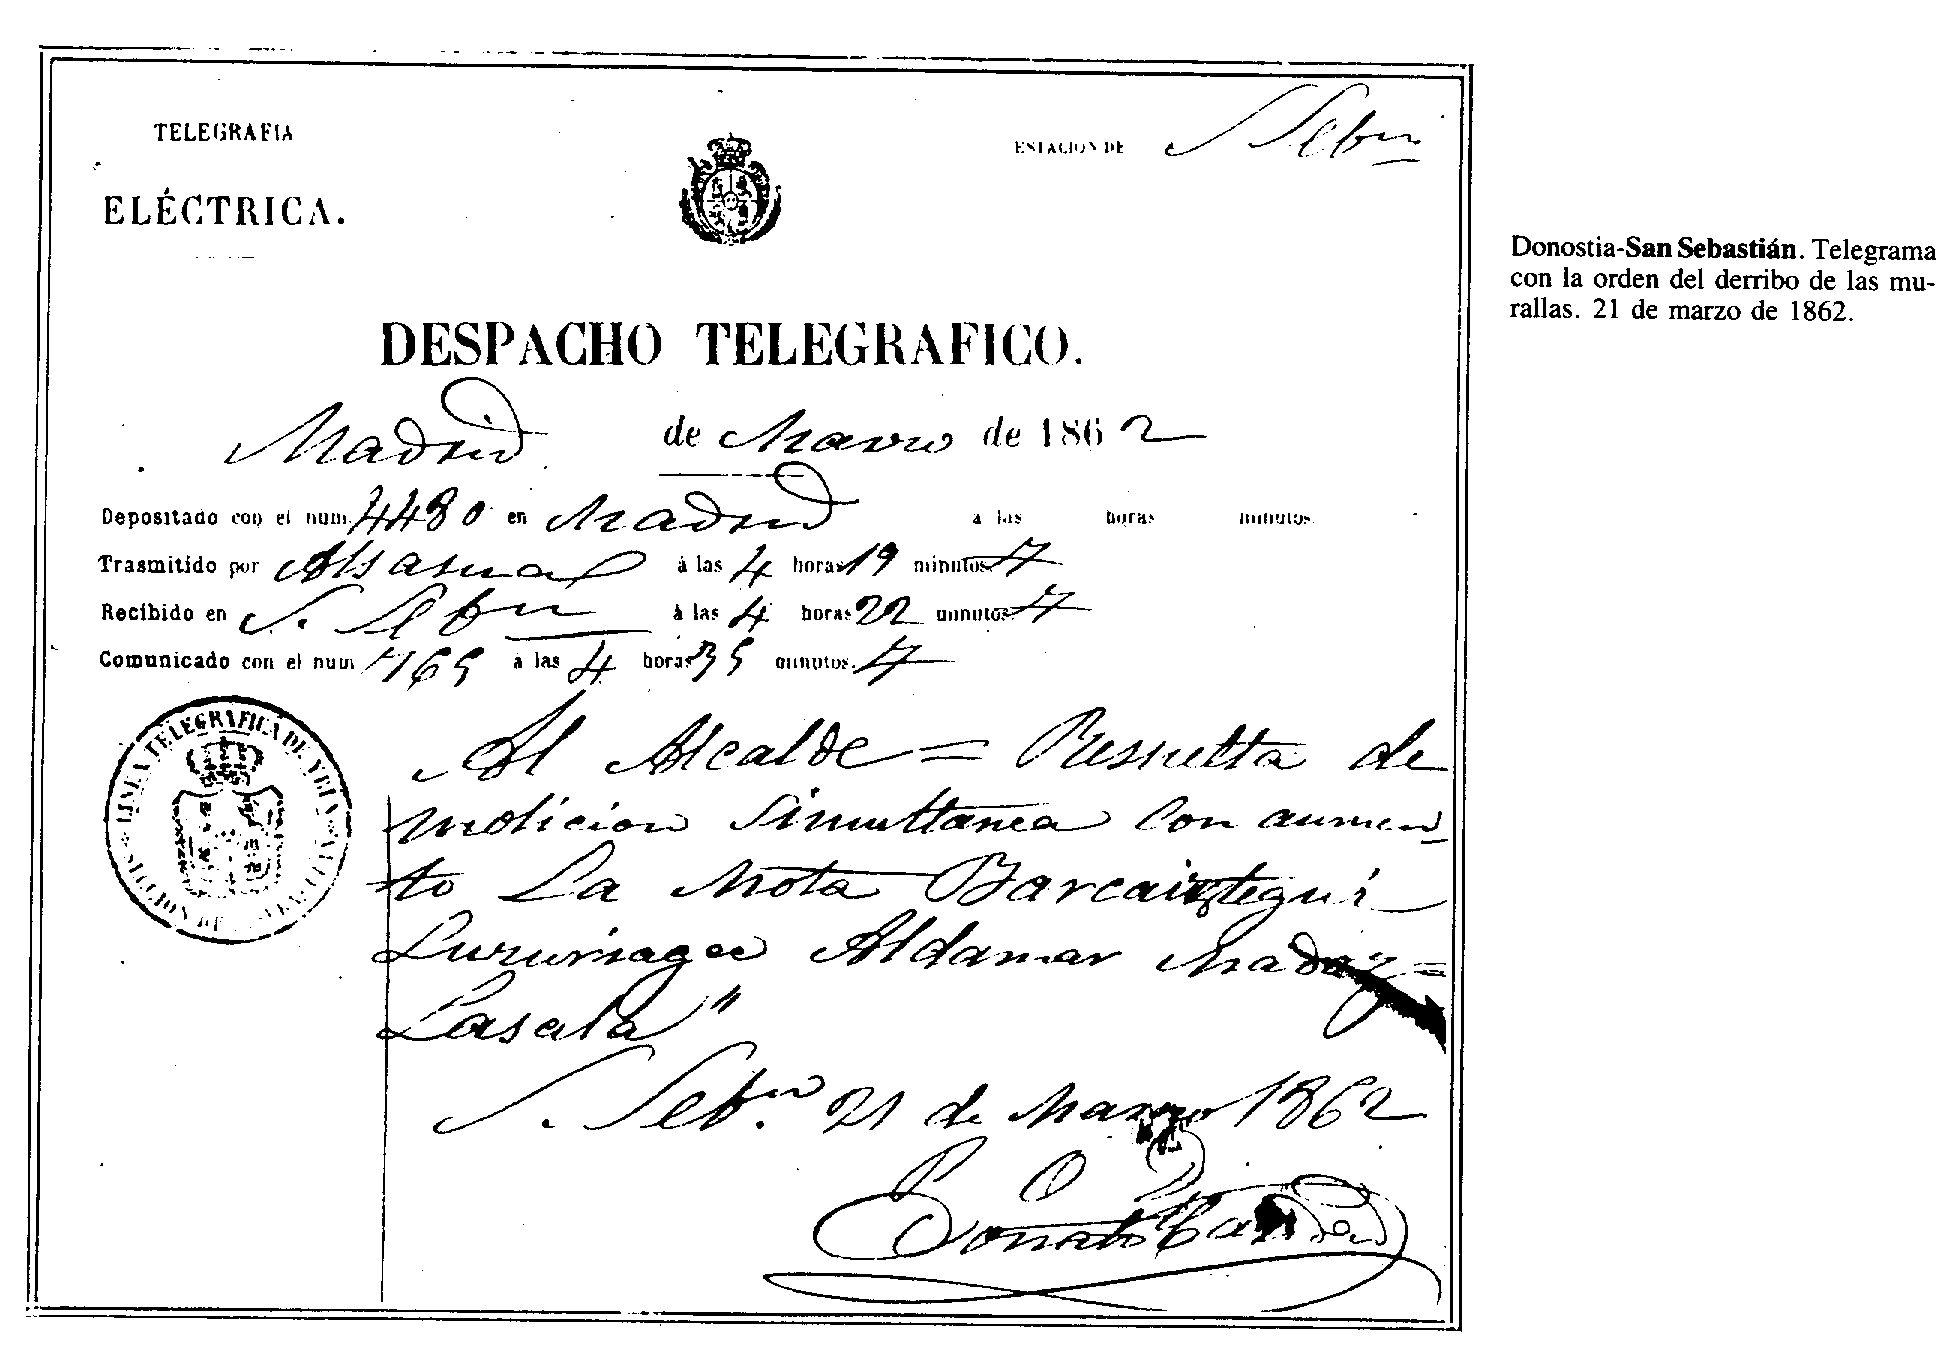 TELEGRAFIA
ELÉCTRICA.
ESTACION DE S Sebn
DESPACHO TELEGRAFICO.
Madrid de Marzo de 1862
Depositado con el num 4480 en Madrid á las horas minutos.
Trasmitido por Alsasua á las 4 horas 19 minutos. T
Recibido en S. Sebn á las 4 horas 22 minutos T
Comunicado con el num 765 á las 4 horas 35 minutos. T
LINEA TELEGRAFICA DE YRUN
SECCION DE
Al Alcalde = Resuelta de
molicion simultanea con aumen
to La Mota Barcaiztegui
Lururiaga Aldamar Madoz =
Lasala"
S. Sebn. 21 de Marzo 1862
P O
Donostia-San Sebastián. Telegrama
con la orden del derribo de las mu-
rallas. 21 de marzo de 1862.